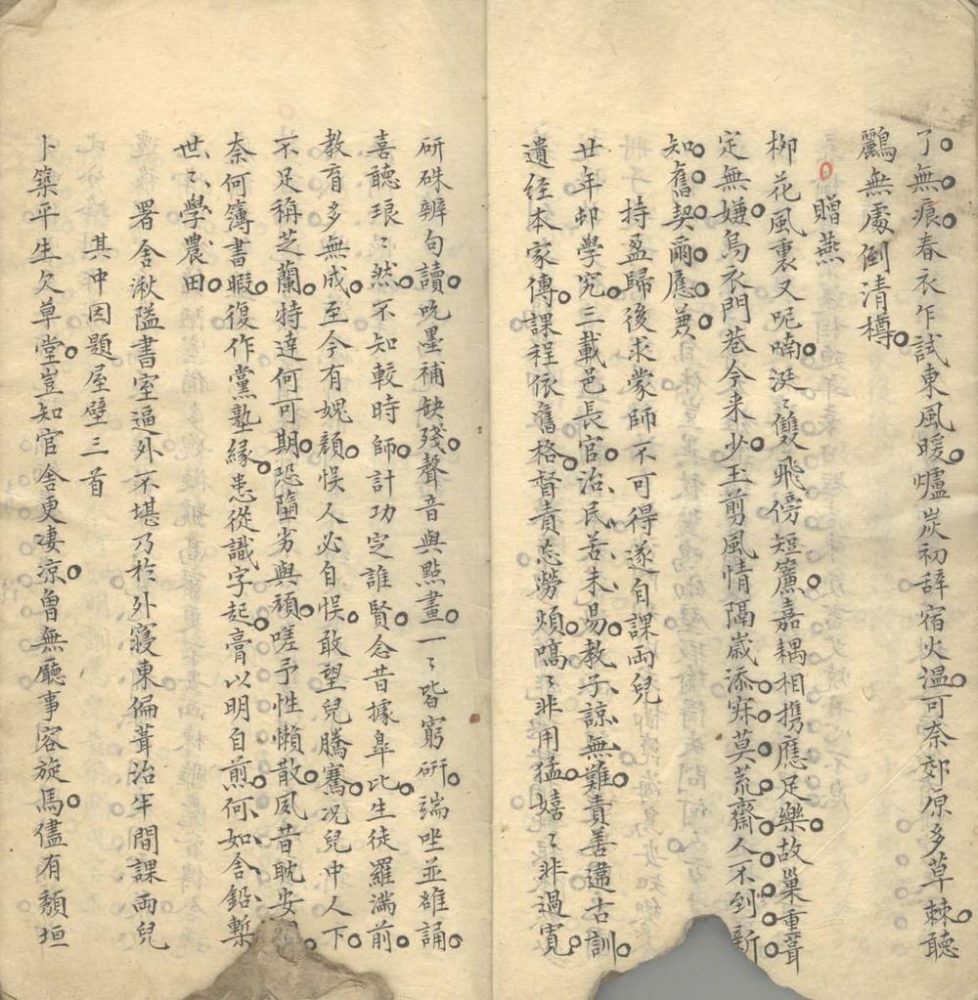 了無痕春衣乍試東風暖爐炭初辞宿火溫可奈郊原多草棘聽
鸝無處倒清樽
贈燕
柳花風裏又呢喃漠〻雙飛傍短簾嘉耦相携應足樂故巢重葺
定無嫌烏衣門巷今来少玉剪風情隔歳添寂莫荒齋人不到新
知舊契爾應兼
持盈歸後求蒙師不可得遂自課兩兒
廿年邨學究三載邑長官治民苦未易教子諒無難責善違古訓
遺経本家傳課程依舊格督責忘勞煩嗃〻非用猛嬉〻非過寬
研硃辨句讀吮墨補缺殘聲音與點畫一〻皆窮研端坐並雒誦
喜聽琅〻然不知較時師計功定誰賢念昔據臯比生徒羅滿前
教育多無成至今有媿顏悮人必自悮敢望兒騰騫况兒中人下
不足稱芝蘭特達何可期恐墮劣與頑嗟予性懶散夙昔耽安
奈何簿書暇復作黨塾緣患從識字起膏以明自煎何如舍鉛槧
世〻學農田
署舍湫隘書室逼外不堪乃於外寢東偏葺治半間課兩兒
其中因題屋壁三首
卜築平生欠草堂豈知官舍更凄涼曾無廳事容旋馬儘有頹垣